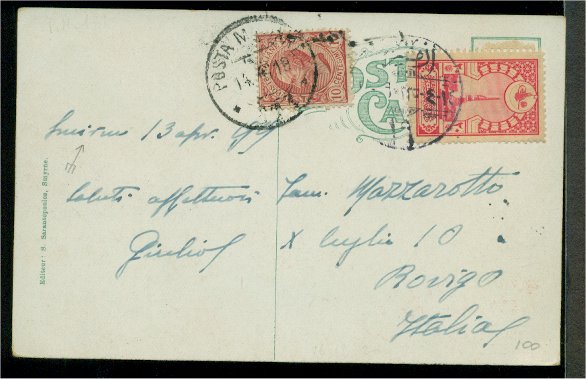 POSTA M
10 CENT
POST
CARD
Smirne 13 apr. 919
Saluti affettuosi
Giulio
Fam. Mazzarotto
X luglio 10
Rovigo
Italia
100
Editeur: S. Sarantopoulos, Smyrne.